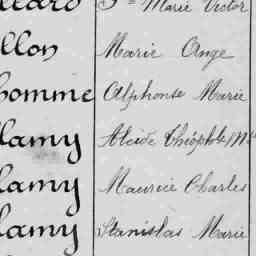 Marie Victor
llon Marie Ange
homme Alphonse Marie
lamy Alcide Théophile Mie
lamy Maurice Charles
lamy Stanislas Marie